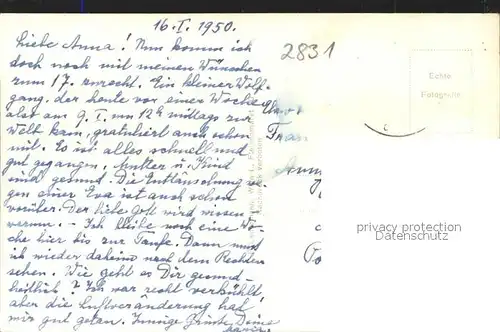 16. I. 1950.
2831
Liebe Anna! Nun komm ich
doch noch mit meinen Wünschen
zum 17. zurecht. Ein kleiner Wolf-
gang, der heute vor einer Woche
also am 9. I. um 12h mittags zur
Welt kam, gratuliert auch schon
mit. Es ist alles schnell und
gut gegangen, Mutter u. Kind
sind gesund. Die Enttäuschung we-
gen einer Eva ist auch schon
vorüber. Der liebe Gott wird wissen
warum. - Ich bleibe noch eine Wo-
che hier bis zur Taufe. Dann muß
ich wieder daheim nach dem Rechten
sehen. Wie geht es Dir gesund-
heitlich? Ich war recht verkühlt,
aber die Luftveränderung hat
mir gut getan. Innige Grüße Deine
Echte
Fotografie
Frau
privacy protection
Datenschutz